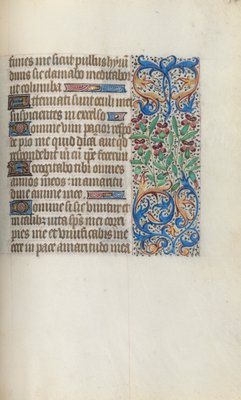 simes me sicut pullus hyrun
dinis sic clamabo meditabor
ut columba
Attenuati sunt oculi mei
suspicientes in excelso
Domine vim patior respon
de pro me quid dicam aut quid
respondebit michi cum ipse fecerim
Recogitabo tibi omnes
annos meos: in amaritu
dine anime mee
Domine si sic vivitur et
in talibus vita spiritus mei corri
pies me et vivificabis me
ecce in pace amaritudo mea